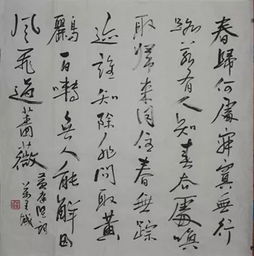 春歸何處寂寞無行
路若有人知春去處喚
取歸來同住春無踪
迹誰知除非問取黄
鸝百囀無人能解因
風飛過薔薇
黄庭堅詞